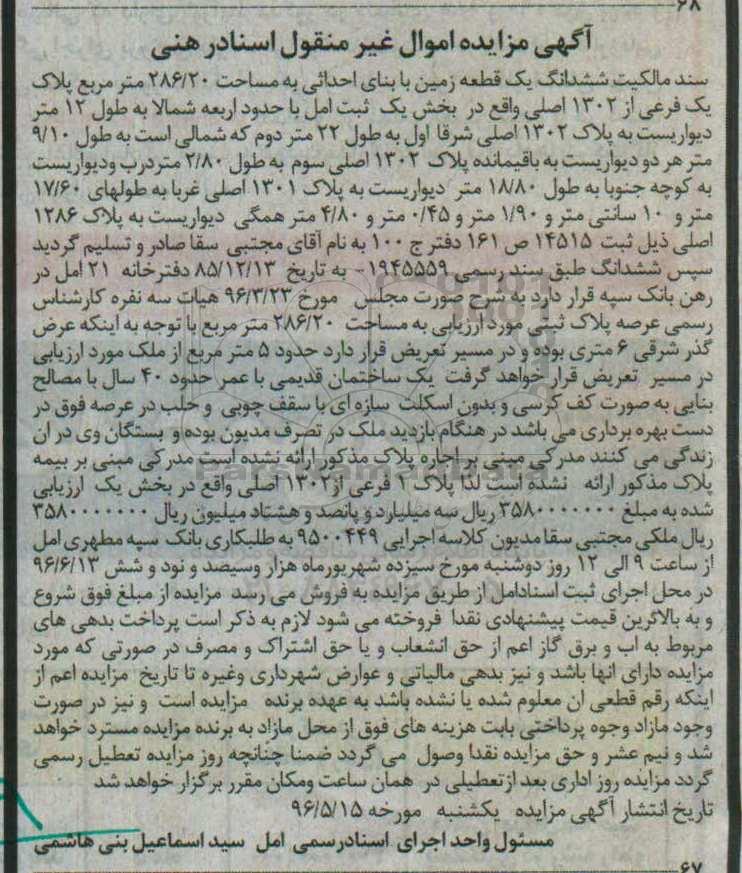 ۶۸
آگهی مزایده اموال غیر منقول اسناد رهنی
سند مالکیت ششدانگ یک قطعه زمین با بنای احداثی به مساحت ۲۸۶/۲۰ متر مربع پلاک
یک فرعی از ۱۳۰۲ اصلی واقع در بخش یک ثبت امل با حدود اربعه شمالا به طول ۱۲ متر
دیواریست به پلاک ۱۳۰۲ اصلی شرقا اول به طول ۲۲ متر دوم که شمالی است به طول ۹/۱۰
متر هر دو دیواریست به باقیمانده پلاک ۱۳۰۲ اصلی سوم به طول ۲/۸۰ متردرب ودیواریست
به کوچه جنوبا به طول ۱۸/۸۰ متر دیواریست به پلاک ۱۳۰۱ اصلی غربا به طولهای ۱۷/۶۰
متر و ۱۰ سانتی متر و ۱/۹۰ متر و ۰/۴۵ متر و ۴/۸۰ متر همگی دیواریست به پلاک ۱۲۸۶
اصلی ذیل ثبت ۱۴۵۱۵ ص ۱۶۱ دفتر ج ۱۰۰ به نام آقای مجتبی سقا صادر و تسلیم گردید
سپس ششدانگ طبق سند رسمی ۱۹۴۵۵۵۹- به تاریخ ۸۵/۱۲/۱۳ دفترخانه ۲۱ امل در
رهن بانک سپه قرار دارد به شرح صورت مجلس مورخ ۹۶/۳/۲۳ هیات سه نفره کارشناس
رسمی عرصه پلاک ثبتی مورد ارزیابی به مساحت ۲۸۶/۲۰ متر مربع با توجه به اینکه عرض
گذر شرقی ۶ متری بوده و در مسیر تعریض قرار دارد حدود ۵ متر مربع از ملک مورد ارزیابی
در مسیر تعریض قرار خواهد گرفت یک ساختمان قدیمی با عمر حدود ۴۰ سال با مصالح
بنایی به صورت کف کرسی و بدون اسکلت سازه ای با سقف چوبی و حلب در عرصه فوق در
دست بهره برداری می باشد در هنگام بازدید ملک در تصرف مدیون بوده و بستگان وی در ان
زندگی می کنند مدرکی مبنی بر اجاره پلاک مذکور ارائه نشده است مدرکی مبنی بر بیمه
پلاک مذکور ارائه نشده است لذا پلاک ۱ فرعی از۱۳۰۲ اصلی واقع در بخش یک ارزیابی
شده به مبلغ ۳۵۸۰۰۰۰۰۰۰ ریال سه میلیارد و پانصد و هشتاد میلیون ریال ۳۵۸۰۰۰۰۰۰۰
ریال ملکی مجتبی سقا مدیون کلاسه اجرایی ۹۵۰۰۴۴۹ به طلبکاری بانک سپه مطهری امل
از ساعت ۹ الی ۱۲ روز دوشنبه مورخ سیزده شهریورماه هزار وسیصد و نود و شش ۹۶/۶/۱۳
در محل اجرای ثبت اسنادامل از طریق مزایده به فروش می رسد مزایده از مبلغ فوق شروع
و به بالاترین قیمت پیشنهادی نقدا فروخته می شود لازم به ذکر است پرداخت بدهی های
مربوط به اب و برق گاز اعم از حق انشعاب و یا حق اشتراک و مصرف در صورتی که مورد
مزایده دارای انها باشد و نیز بدهی مالیاتی و عوارض شهرداری وغیره تا تاریخ مزایده اعم از
اینکه رقم قطعی ان معلوم شده یا نشده باشد به عهده برنده مزایده است و نیز در صورت
وجود مازاد وجوه پرداختی بابت هزینه های فوق از محل مازاد به برنده مزایده مسترد خواهد
شد و نیم عشر و حق مزایده نقدا وصول می گردد ضمنا چنانچه روز مزایده تعطیل رسمی
گردد مزایده روز اداری بعد ازتعطیلی در همان ساعت ومکان مقرر برگزار خواهد شد
تاریخ انتشار آگهی مزایده یکشنبه مورخه ۹۶/۵/۱۵
مسئول واحد اجرای اسنادرسمی امل سید اسماعیل بنی هاشمی
۶۷